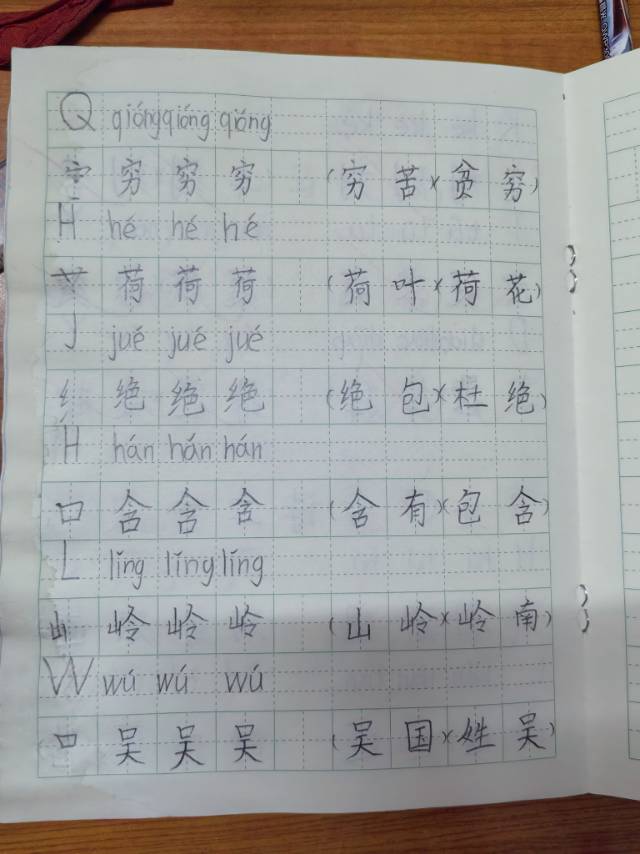 Q qióng qióng qióng
宀 穷 穷 穷 (穷苦)(贫穷)
H hé hé hé
艹 荷 荷 荷 (荷叶)(荷花)
J jué jué jué
纟 绝 绝 绝 (绝包)(杜绝)
H hán hán hán
口 含 含 含 (含有)(包含)
L lǐng lǐng lǐng
山 岭 岭 岭 (山岭)(岭南)
W wú wú wú
口 吴 吴 吴 (吴国)(姓吴)